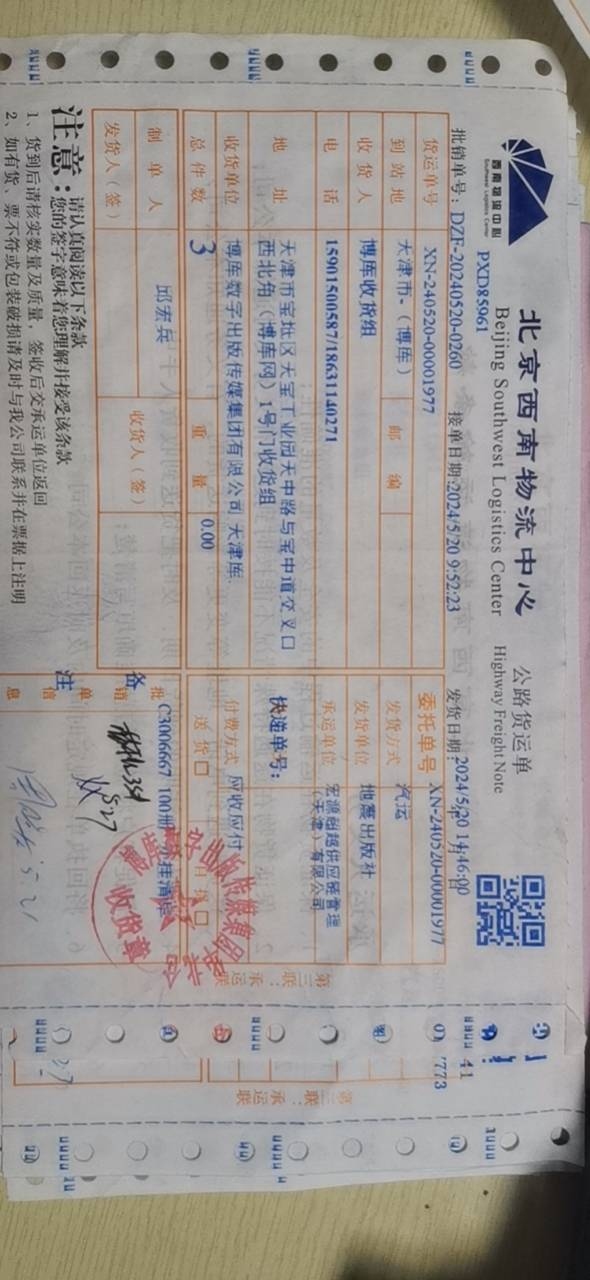 西南物流中心
Southwest Logistics Center
北京西南物流中心
Beijing Southwest Logistics Center
公路货运单
Highway Freight Note
PXD85961
批销单号: DZF-20240520-0260 接单日期:2024/5/20 9:52:23 发货日期: 2024/5/20 14:46:00
年 月 日
货运单号 XN-240520-00001977 委托单号 XN-240520-00001977
到站地 天津市-（博库） 邮编 发货方式 汽运
收货人 博库收货组 发货单位 地震出版社
电话 15901500587/18631140271 承运单位 宏源超越供应链管理
（天津）有限公司
地址 天津市宝坻区天宝工业园天中路与宝中道交叉口
西北角（博库网）1号门收货组
快递单号:
收货单位 博库数字出版传媒集团有限公司天津库 付费方式 应收应付
总件数 3 重量 0.00 送货□ 自提□
制单人 邱宏兵 收货人（签）
发货人（签）
备注
批销单信息
C3006667 100册
527
5.21
收货章
第三联：承运联
注意:
请认真阅读以下条款
您的签字意味着您理解并接受该条款
1、货到后请核实数量及质量，签收后交承运单位返回
2、如有货、票不符或包装破损请及时与我公司联系并在票据上注明
41
773
第三联：承运联